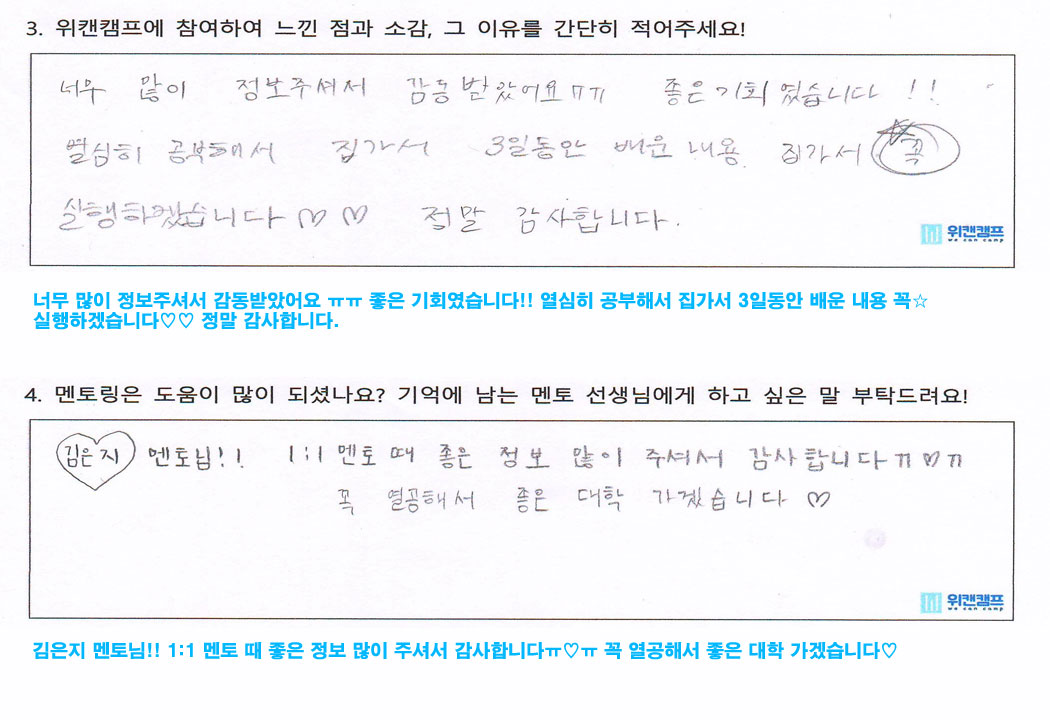 3. 위캔캠프에 참여하여 느낀 점과 소감, 그 이유를 간단히 적어주세요!
너무 많이 정보주셔서 감동받았어요ㅠㅠ 좋은기회였습니다!!
열심히 공부해서 집가서 3일동안 배운 내용 집가서 꼭
실행하겠습니다♡♡ 정말 감사합니다.
위캔캠프
we can camp
너무 많이 정보주셔서 감동받았어요 ㅠㅠ 좋은 기회였습니다!! 열심히 공부해서 집가서 3일동안 배운 내용 꼭☆
실행하겠습니다♡♡ 정말 감사합니다.
4. 멘토링은 도움이 많이 되셨나요? 기억에 남는 멘토 선생님에게 하고 싶은 말 부탁드려요!
김은지 멘토님!! 1:1 멘토 때 좋은 정보 많이 주셔서 감사합니다ㅠ♡ㅠ
꼭 열공해서 좋은 대학 가겠습니다♡
위캔캠프
we can camp
김은지 멘토님!! 1:1 멘토 때 좋은 정보 많이 주셔서 감사합니다ㅠ♡ㅠ 꼭 열공해서 좋은 대학 가겠습니다♡